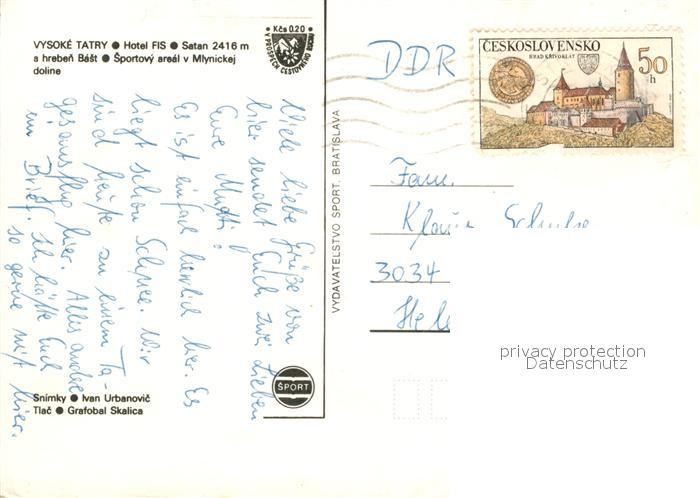 VYSOKÉ TATRY ● Hotel FIS ● Satan 2416 m
a hrebeň Bášt ● Športový areál v Mlynickej
doline
Kčs 0.20
V PROSPECH CESTOVNÉHO RUCHU
Viele liebe Grüße von
hier sendet Euch zwei Lieben
Eure Mutti!
Es ist einfach herrlich hier. Es
liegt schon Schnee. Wir
sind heute zu einem Ta-
gesausflug hier. Alles andere
im Brief. Ich hätte Euch
so gerne mit hier.
Snímky ● Ivan Urbanovič
Tlač ● Grafobal Skalica
ŠPORT
VYDAVATEĽSTVO ŠPORT, BRATISLAVA
DDR
ČESKOSLOVENSKO
HRAD KŘIVOKLÁT
50 h
Fam.
Klaus
3034
privacy protection
Datenschutz